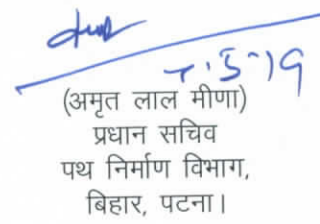 7.5-19
(अमृत लाल मीणा)
प्रधान सचिव
पथ निर्माण विभाग,
बिहार, पटना।